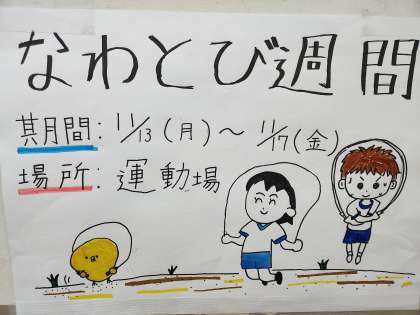 なわとび週間
期間：11/13（月）〜 11/17（金）
場所：運動場